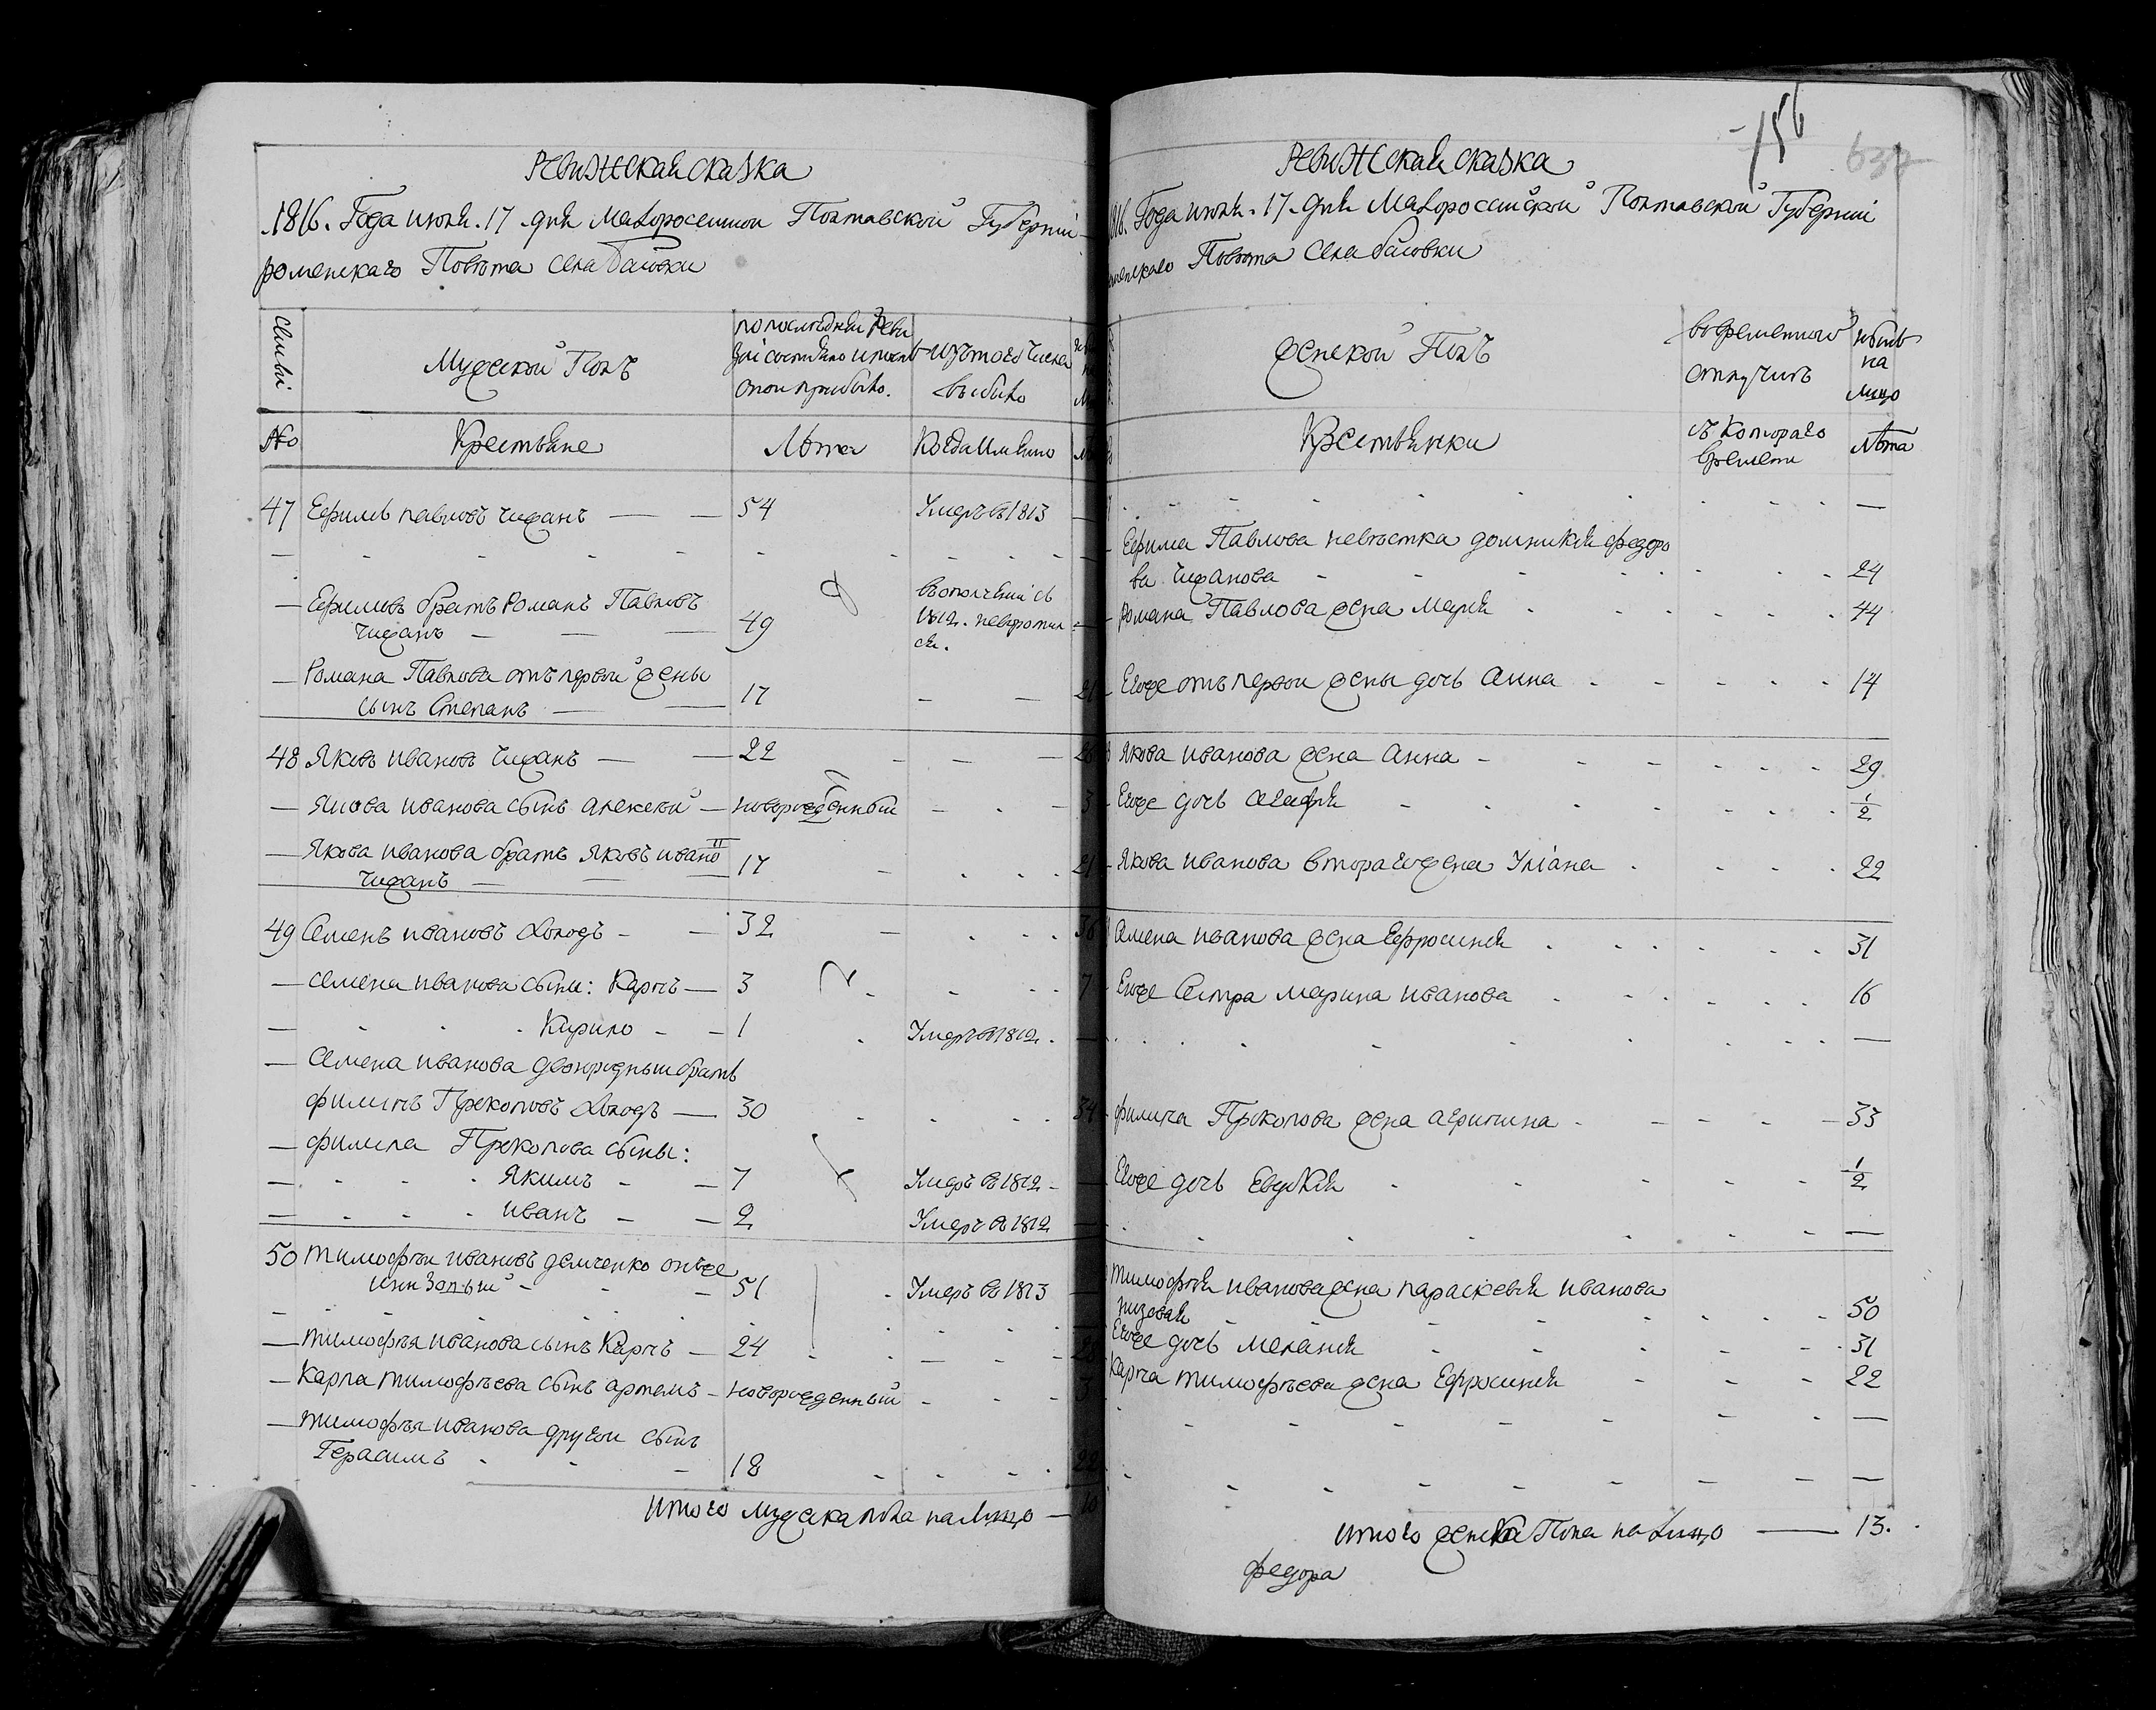 Ревижская сказка
1816. Года июля. 17 дня Малоросейской Полтавской Губерніи
роменскаго Повѣта села басовки
Семьи
Мужеской Полъ
по последней реви
зіи состояло и после
оной прибыло.
изътого числа
выбыло
№
Крестьяне
Лѣта
Когда имянно
47 Ефимъ павловъ чижанъ — — 54 Умеръ в 1813 —
— Ефимовъ братъ Романъ Павловъ
чижанъ — — — 49
въополчении съ
1812. невороти
ся.
— Романа Павлова отъ первой жены
сынъ Степанъ — — 17 — — 21
48 Яковъ ивановъ чижанъ — — 22 — — — 26
— Якова иванова сынъ алексей — новорожденный — 3
— Якова иванова братъ Яковъ ивано II
чижанъ — — — 17 — 21
49 Семенъ ивановъ Холодъ — — 32 — 36
— семена иванова сыны: Карпъ — 3 7
— Кирило — — 1 Умеръ в 1812. —
— Семена иванова двоюродный братъ
филипъ Прокоповъ Холодъ — 30 34
— филипа Прокопова сыны:
— Якимъ — — 7 Умеръ в 1812 —
— иванъ — — 2 Умеръ в 1812 —
50 тимофей ивановъ демченко онъже
51 Умеръ в 1813 —
— тимофѣя иванова сынъ Карпъ — 24 — 28
— Карпа тимофѣева сынъ артемъ — новорожденный — 3
— тимофѣя иванова другой сынъ
Герасимъ — 18 22
итого мужеска пола налицо — 10
156
637
Ревижская сказка
1816. Года июля. 17. дня Малоросейской Полтавской Губерніи
роменскаго Повѣта села басовки
Женской Полъ
вовременной
отлучкѣ
нынѣ
на
лицо
Крестьянки
съ котораго
времени
лѣта
Ефима Павлова невѣстка домникия федоро
ва чижанова 24
Романа Павлова жена Мария 44
Егоже отъ первой жены дочь Анна 14
Якова иванова жена Анна — 29
Егоже дочь агафия ½
Якова иванова втораго жена Уліана 22
Семена иванова жена Ефросиния 31
Егоже Сестра марина иванова 16
филипа Прокопова жена агрипина 33
Егоже дочь Евдокия ½
тимофея иванова жена параскевия иванова
50
Егоже дочь мелания 31
Карпа тимофѣева жена Ефросиния 22
итого женска Пола на лицо — 13.
федора